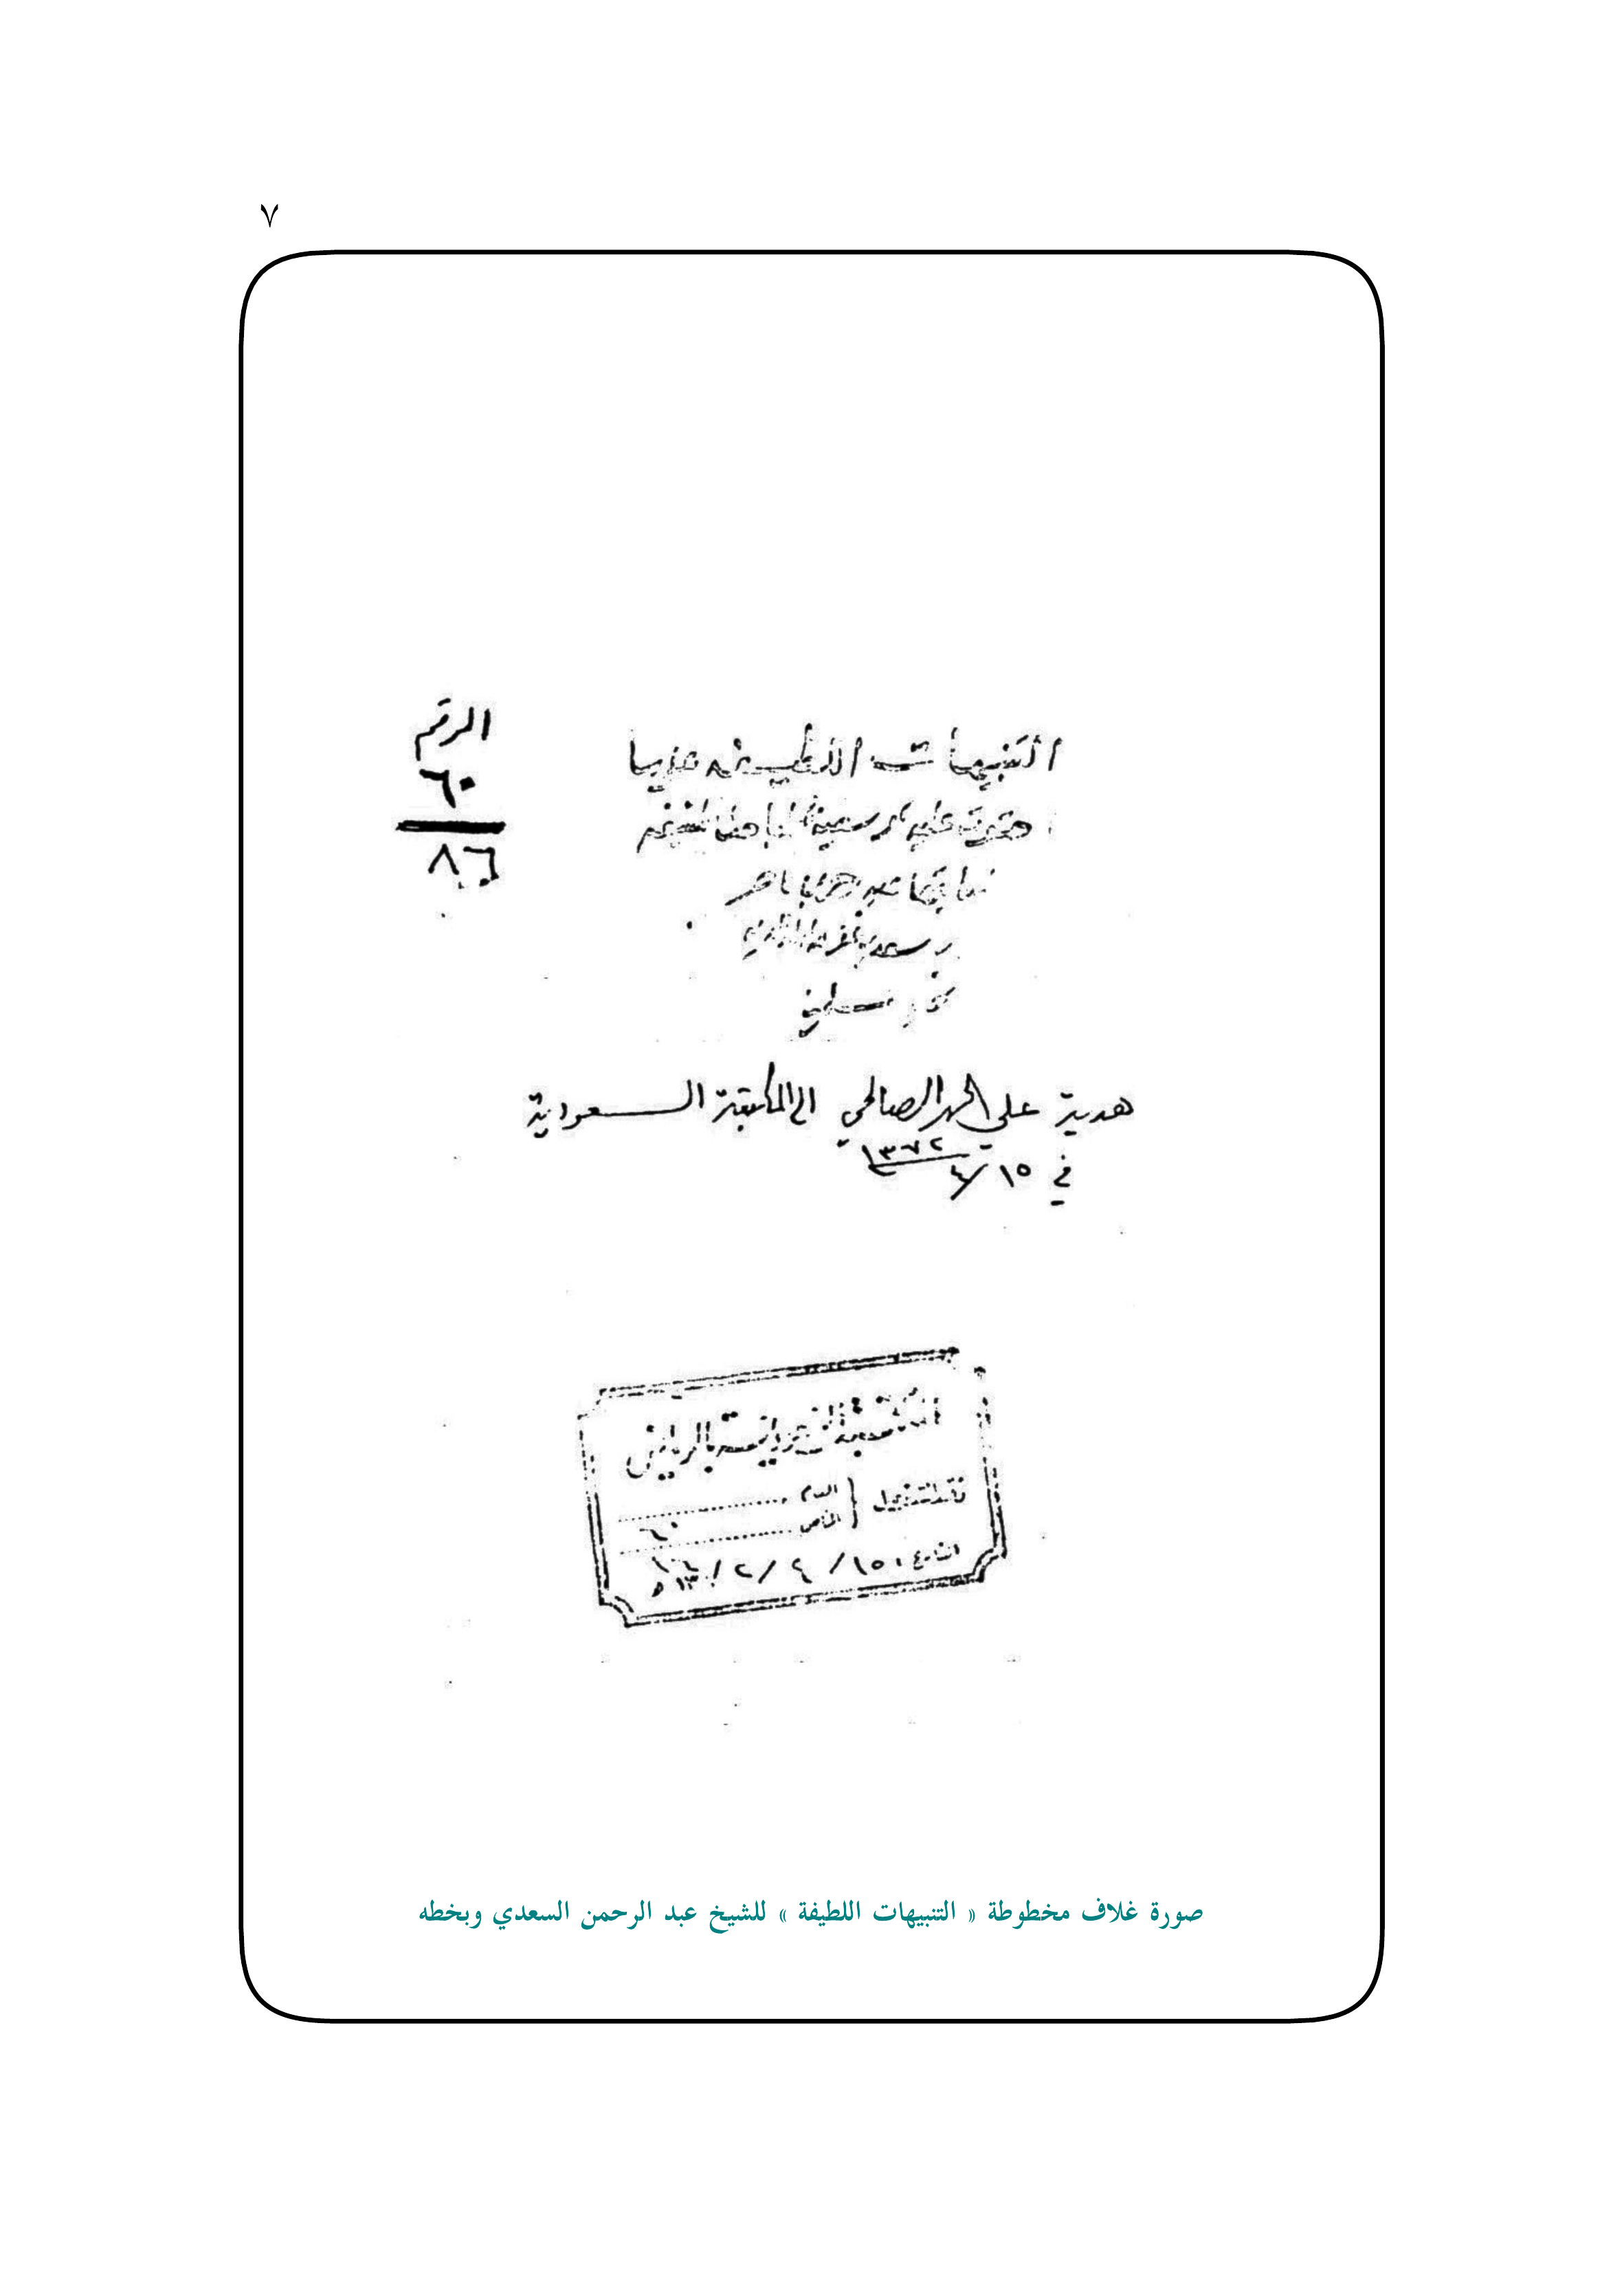 ٧
الرقم
٦٠
٨٦
التنبيهات اللطيفه فيما
احتوت عليه الواسطية من المباحث المنيفه
عبد الرحمن بن ناصر
بن سعدي غفر الله له
هدية علي الحمد الصالحي الى المكتبة السعودية
في ١٥/٤ ١٣٧٢
المكتبة السعودية بالرياض
العام
الخاص ٦٠
صورة غلاف مخطوطة « التنبيهات اللطيفة » للشيخ عبد الرحمن السعدي وبخطه